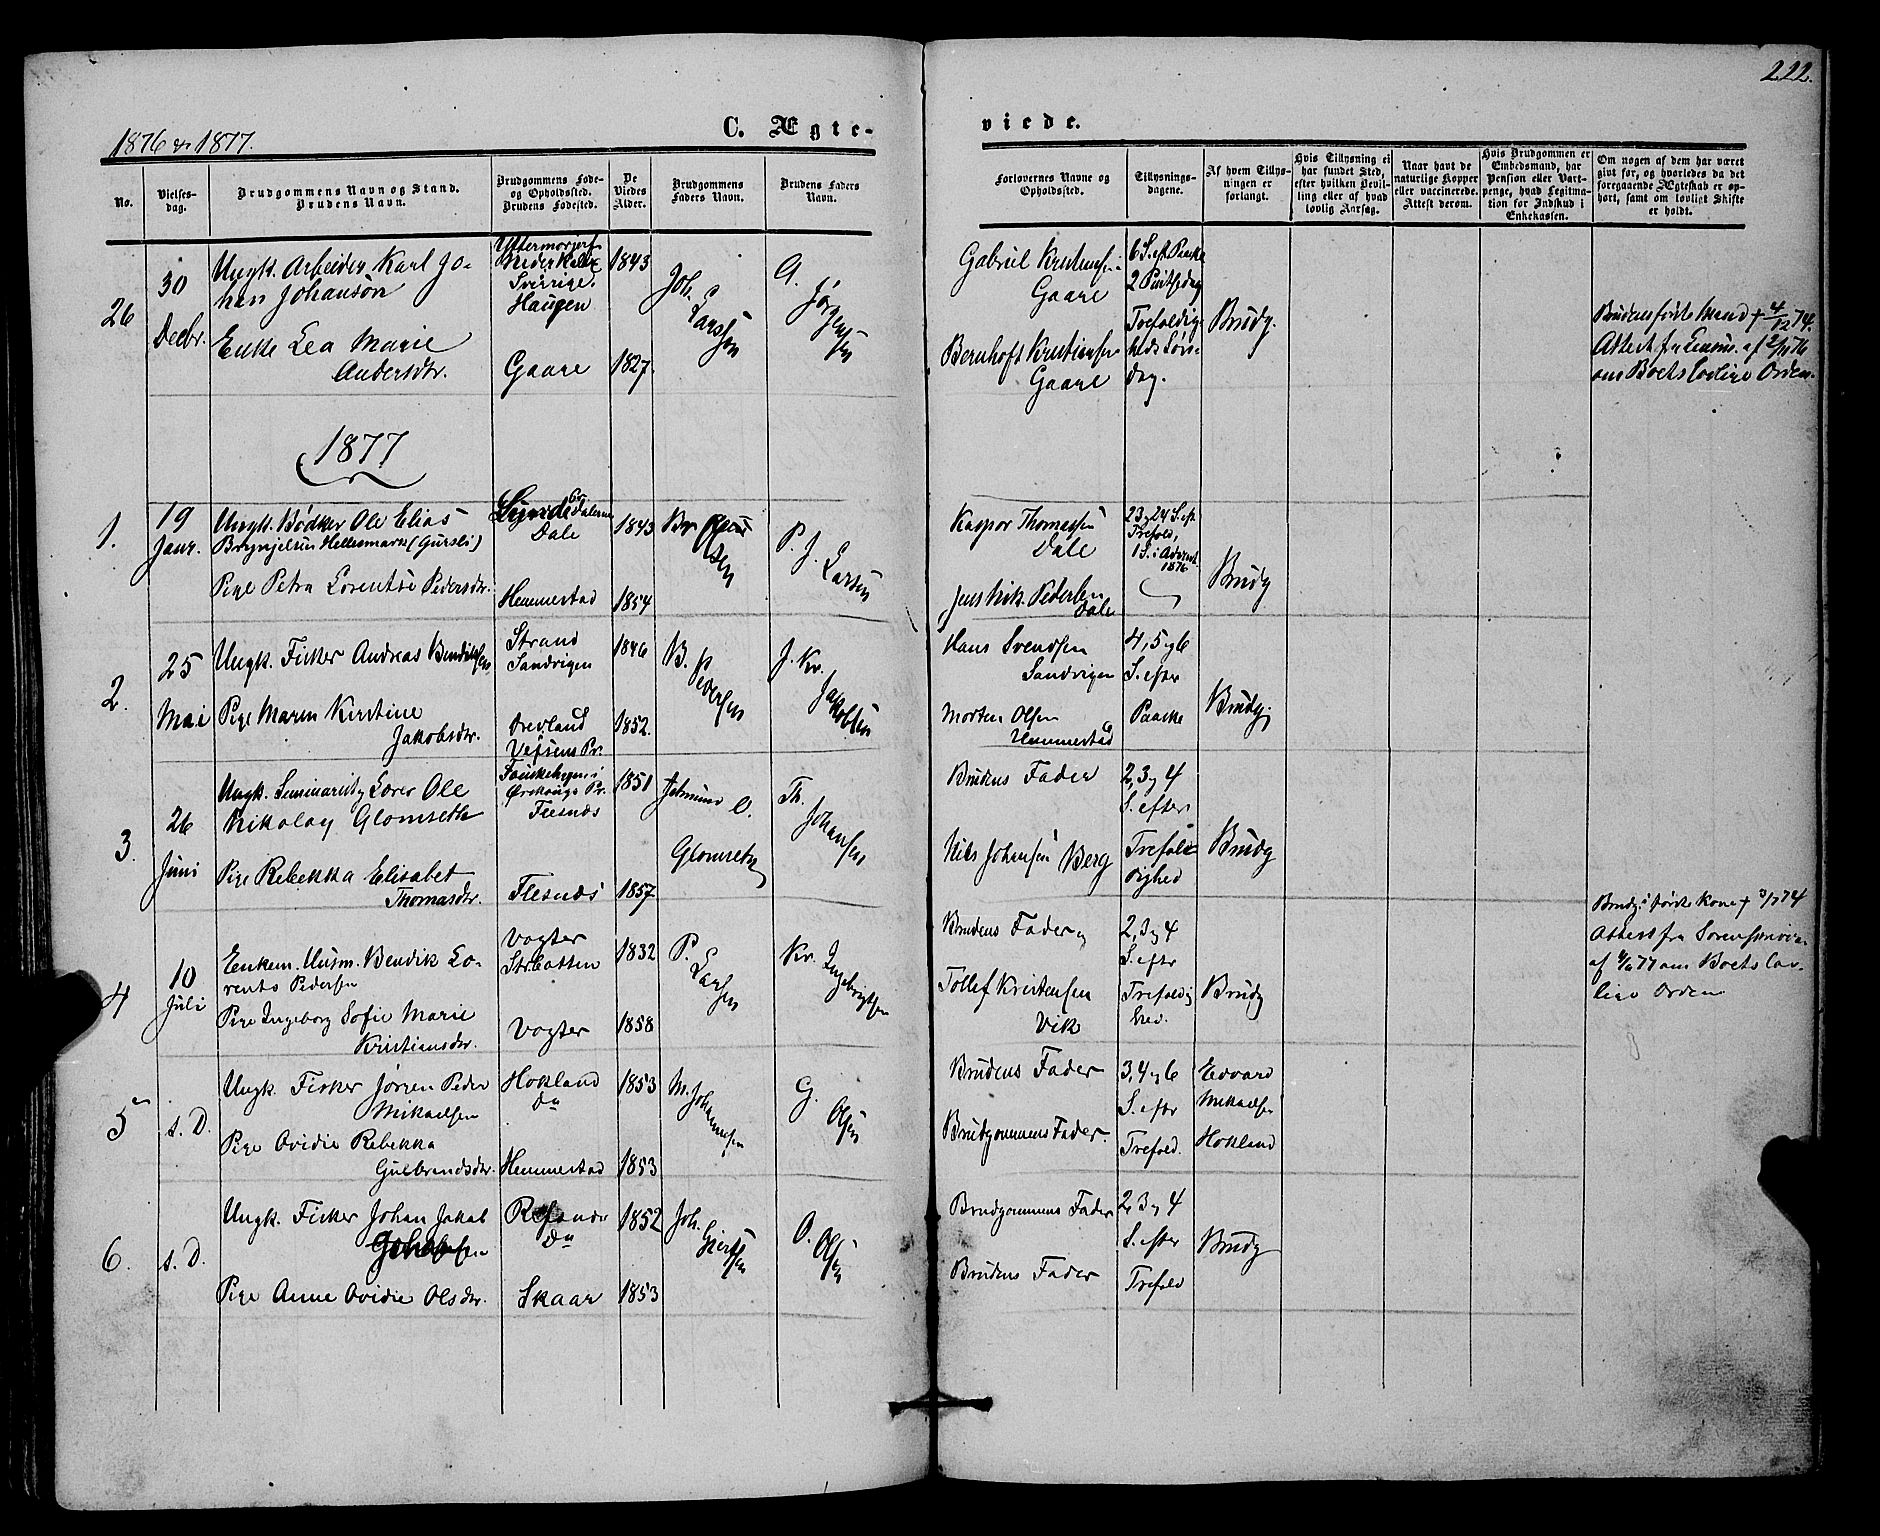 222.
1876 & 1877.
C. Ægte-
viede.
No.
Vielses-
dag.
Brudgommens Navn og Stand.
Brudens Navn.
Brudgommens Føde-
og Opholdssted.
Brudens Fødested.
De
Viedes
Alder.
Brudgommens
Faders Navn.
Brudens Faders
Navn.
Forlovernes Navne og
Opholdssted.
Tillysnings-
dagene.
Af hvem Tillys-
ningen er
forlangt.
Hvis Tillysning ei
har fundet Sted,
efter hvilken Bevil-
ling eller af hvad
lovlig Aarsag.
Naar havt de
naturlige Kopper
eller vaccinerede.
Attest derom.
Hvis Brudgommen er
Embedsmand, har
Pension eller Vart-
penge, hvad Legitima-
tion for Indskud i
Enkekassen.
Om nogen af dem har været
givt før, og hvorledes da det
foregaaende Ægteskab er op-
hørt, samt om lovligt Skifte
er holdt.
26
30
Decbr.
Ungk. Arbeider Karl Jo-
han Johanson
Enke Lea Marie
Andersdtr.
Sverrige.
Haugen
Gaare
1843
1827.
Joh.
Larsson
A.
Jørgensen
Gabriel Kristensen
Gaare
Bernhoft Kristiansen
Gaare
6 S. eft Paaske
2 Pintsedag
Trefoldig-
heds Søn-
dag.
Brudg.
Brudens første Mand † 4/12 74.
Attest fra
om Boets lovlige Orden.
1877
1.
19
Janr.
Ungk. Bødker Ole Elias
Brynjelsen Hellesmark (Gursli)
Pige Petra Lorentse Pedersdtr.
Dale
Hemmestad
1843
1854
Olsen
P. J. Larsen
Kaspor Thomassen
Dale
Jens Nik. Pedersen
Dale
23 og 24 S. eft
Trefold,
1 S. i Advent
1876
Brudg
2.
25
Mai
Ungk. Fisker Andreas Bendiksen
Pige Maren Kirstine
Jakobsdtr.
Strand
Sandvigen
Drevland
Vefsens Pr.
1846
1852.
B.
Pedersen
J. Kr.
Jakobsen
Hans Svendsen
Sandvigen
Morten Olsen
Hemmestad
4, 5 og 6
S. efter
Paaske
Brudg.
3.
26
Juni
Ungk. Seminarist og Lærer Ole
Nikolay Glomseth
Pige Rebekka Elisabet
Thomasdtr.
Ørskougs Pr.
Flesnæs
Flesnæs
1851
1857
O.
Glomseth
Th.
Johansen
Brudens Fader
Nils Johansen Berg
2, 3 og 4
S. efter
Trefol-
dighed
Brudg
4
10
Juli
Enkem. Husm. Bendik Lo-
rents Pedersen
Pige Ingeborg Sofie Marie
Kristiansdtr.
Vogter
Strbotten
Vogter
1832
1858
P.
Larsen
Kr. Ingebrigtsen
Brudens Fader
Tollef Kristensen
Vik
2, 3 og 4
S. efter
Trefoldig
hed.
Brudg
Brudg.s første Kone † 3/7 74
Attest fra Sorenskriver
af 4/6 77 om Boets lov-
lige Orden
5
s. D.
Ungk. Fisker Jørgen Peder
Mikaelsen
Pige Ovidie Rebekka
Gulbrandsdtr.
Hokland
do
Hemmestad
1853
1853
M.
Johannesen
G.
Olsen
Brudens Fader
Brudgommens Fader.
3, 4 og 6
S. efter
Trefold.
Edvard
Mikaelsen
Hokland
6.
s. D.
Ungk. Fisker Johan Jakob
Johansen
Pige Anne Ovidie Olsdtr.
Refsnæs
do
Skaar
1852
1853
Joh.
O. Olsen
Brudgommens Fader
Brudens Fader
2, 3 og 4
S. efter
Trefold
Brudg